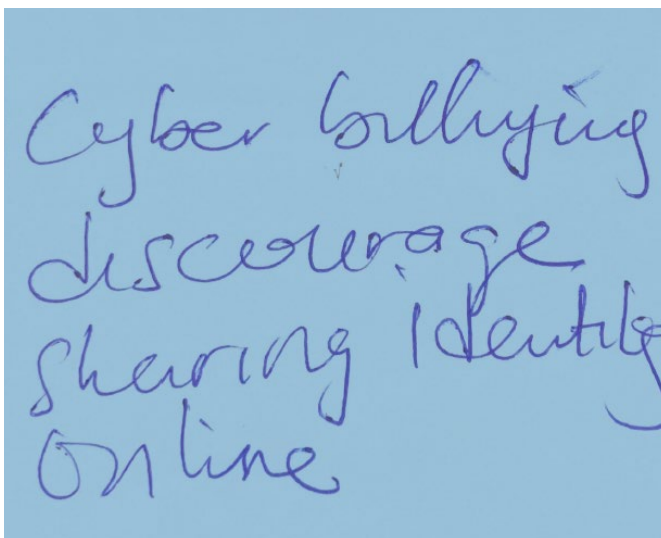 Cyber bullying
discourage
sharing identity
online